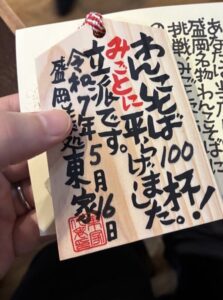 盛岡名物わんこそ
挑戦、み
わんこそば100杯!
みごとに平らげました。
立派です。
令和7年5月16日
盛岡 処 東家